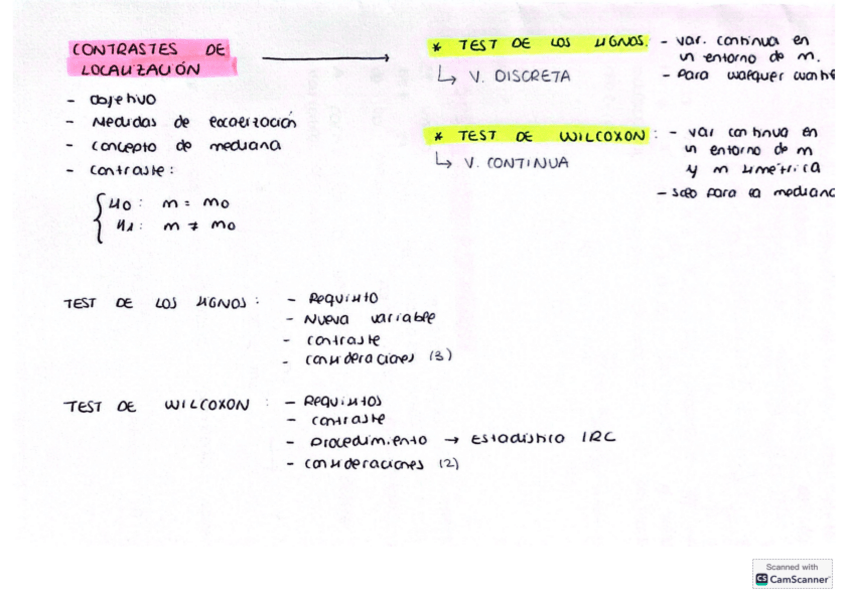 CONTRASTES DE
LOCALIZACIÓN
- objetivo
- Medidas de localización
- concepto de mediana
- contraste:
H0: m = m0
H1: m ≠ m0
* TEST DE LOS SIGNOS. - var. continua en
un entorno de m.
- Para cualquier
↳ V. DISCRETA
* TEST DE WILCOXON: - var continua en
un entorno de m
y m simétrica
- solo para la mediana
↳ V. CONTINUA
TEST DE LOS SIGNOS: - Requisito
- Nueva variable
- contraste
- consideraciones (3)
TEST DE WILCOXON: - Requisitos
- contraste
- Procedimiento → Estadístico IRC
- consideraciones (2)
Scanned with
CS CamScanner